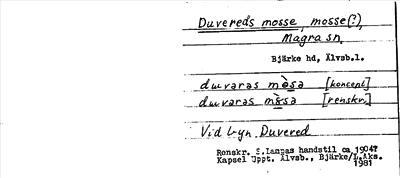 Duvereds mosse, mosse(?),
Magra sn,
Bjärke hd, Älvsb.l.
duvaras mòsa [koncent]
duvaras mòsa [renskr.]
Vid byn Duvered
Renskr. S.Lampas handstil ca 1904?
Kapsel Uppt. Älvsb., Bjärke/L.Aks.
1981